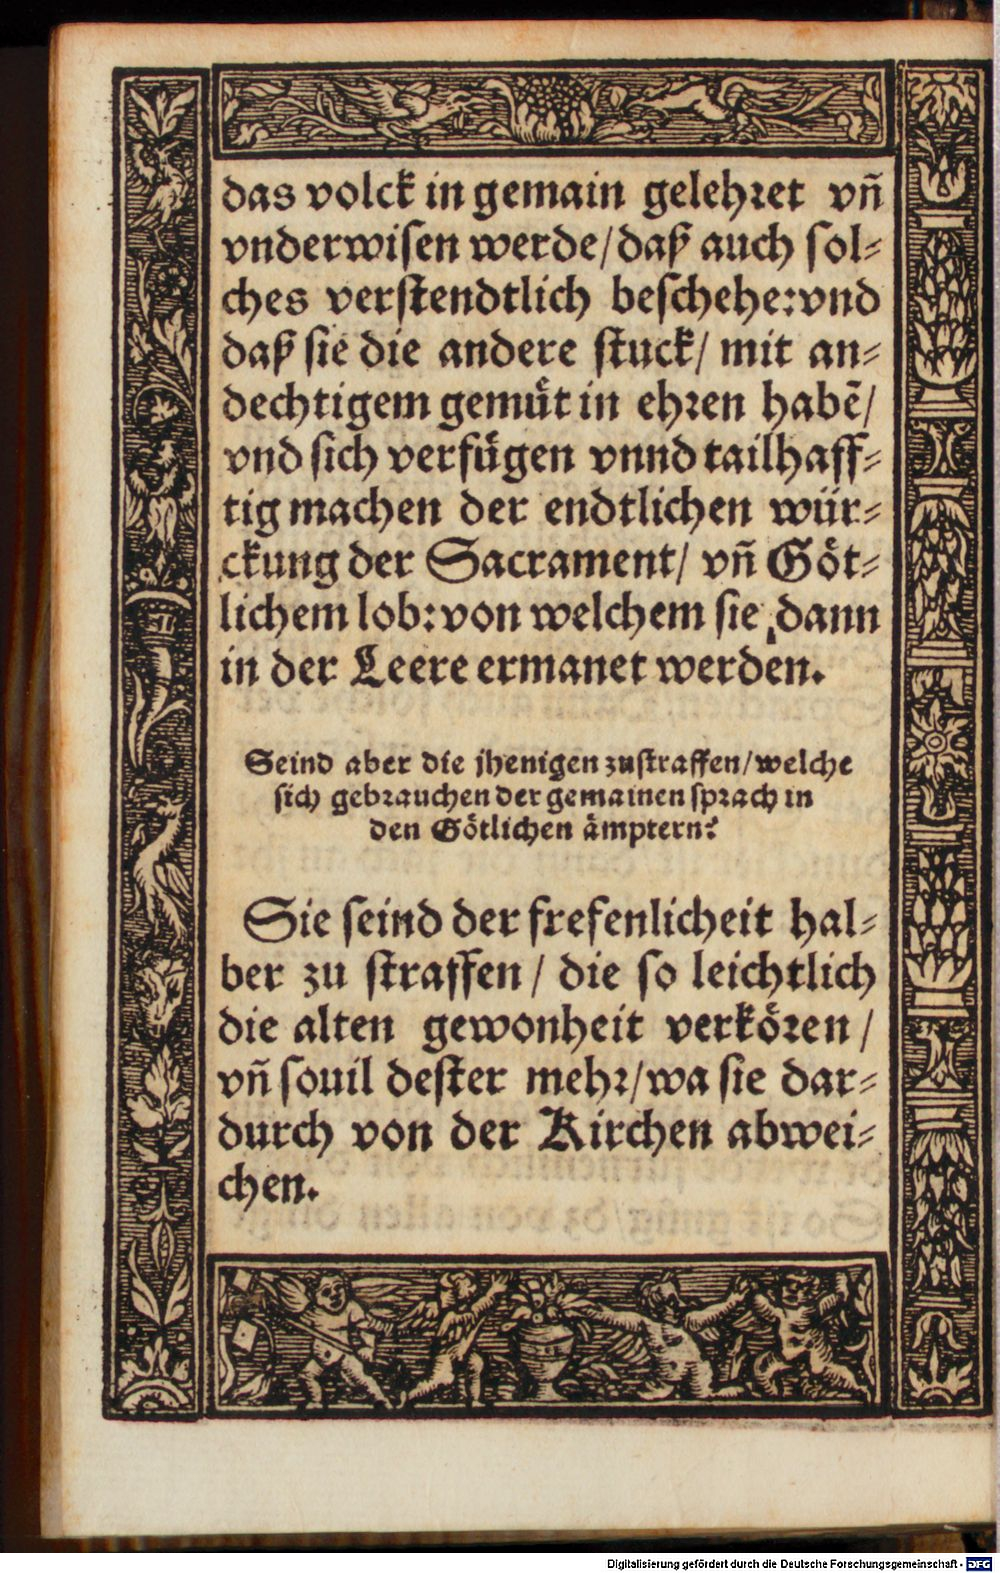 das volck in gemain gelehret vñ
vnderwisen werde/daß auch sol⸗
ches verstendtlich beschehe:vnd
daß sie die andere stuck/ mit an⸗
dechtigem gemuͤt in ehren habē/
vnd sich verfuͤgen vnnd tailhaff⸗
tig machen der endtlichen wür⸗
ckung der Sacrament/ vñ Goͤt⸗
lichem lob:von welchem sie dann
in der Leere ermanet werden.
Seind aber die jhenigen zustraffen/welche
sich gebrauchen der gemainen sprach in
den Goͤtlichen aͤmptern?
Sie seind der frefenlicheit hal⸗
ber zu straffen/ die so leichtlich
die alten gewonheit verkoͤren/
vñ souil dester mehr/wa sie dar⸗
durch von der Kirchen abwei⸗
chen.
Digitalisierung gefördert durch die Deutsche Forschungsgemeinschaft - DFG